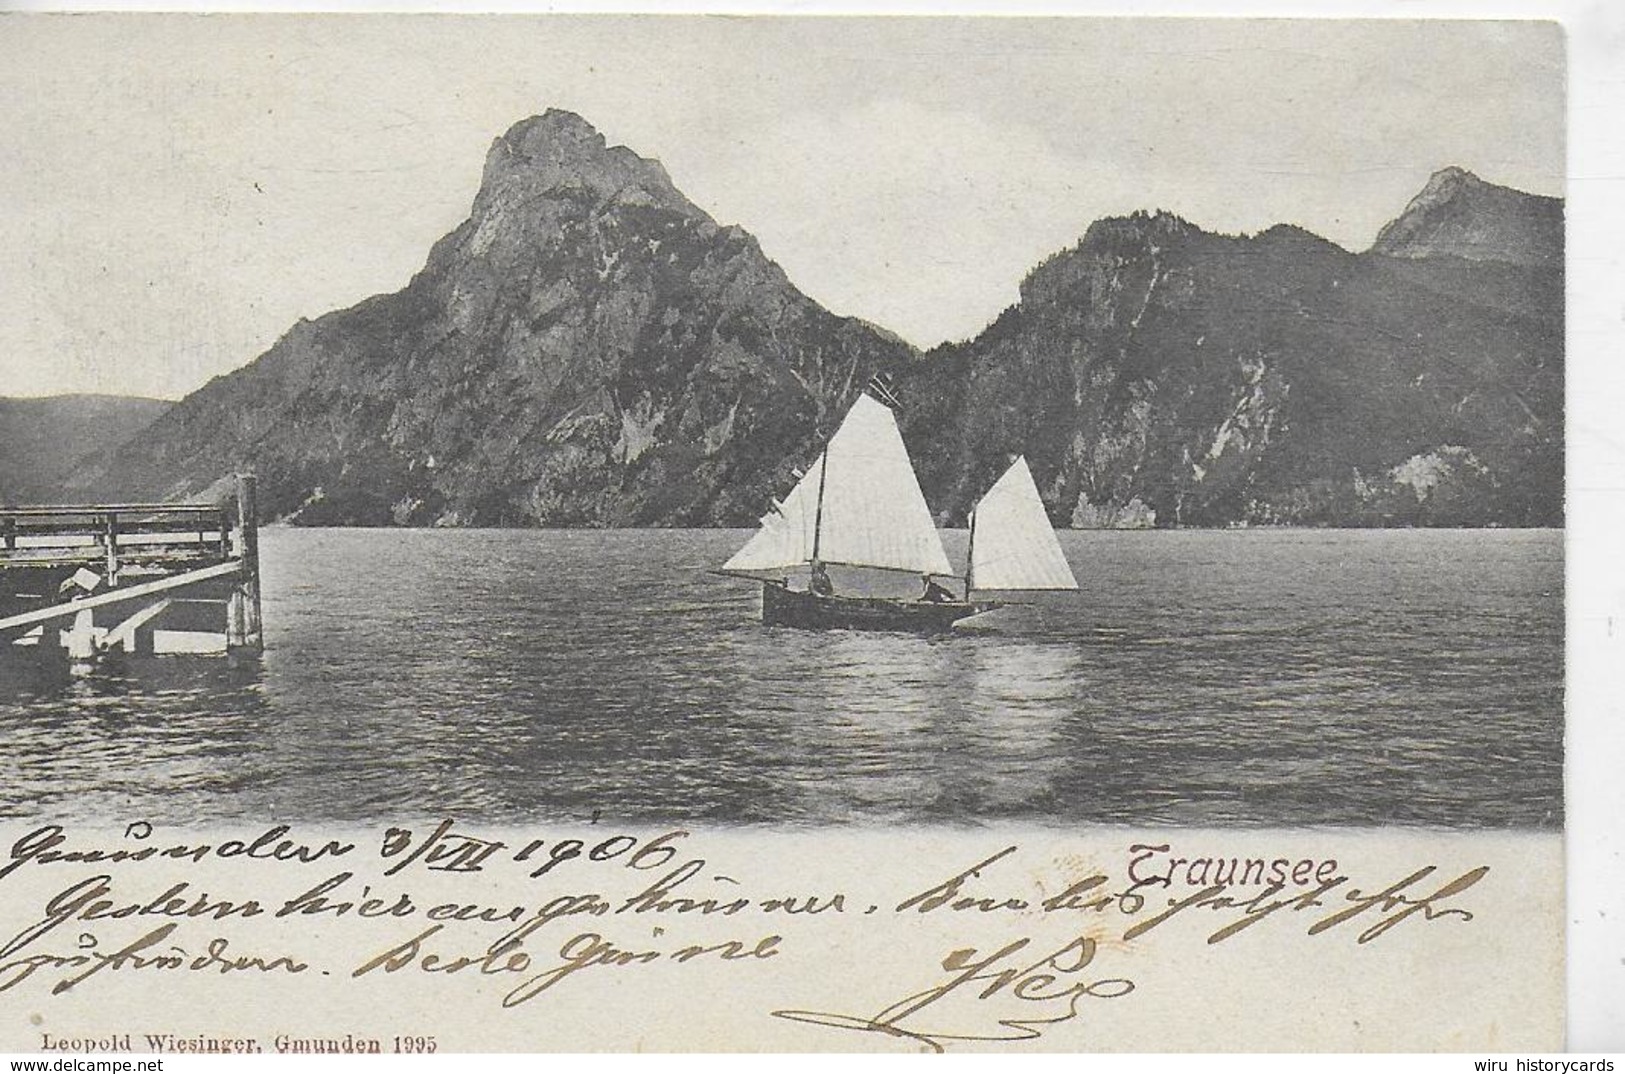 Gmunden 3/VII 1906
Traunsee
Gestern hier angekommen. Bin bis jetzt sehr
zufrieden. Beste Grüsse
Leopold Wiesinger, Gmunden 1995
wiru historycards
www.delcampe.net